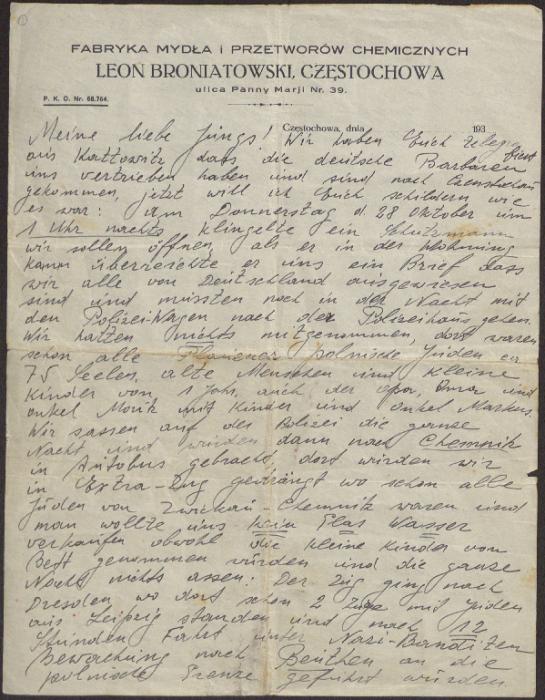 FABRYKA MYDŁA I PRZETWORÓW CHEMICZNYCH
LEON BRONIATOWSKI, CZĘSTOCHOWA
ulica Panny Marji Nr. 39.
P. K. O. Nr. 68.764.
Częstochowa, dnia 193
Meine liebe Jungs! Wir haben Euch telegrafiert
aus Kattowitz dass die deutsche Barbaren
uns vertrieben haben und sind nach Czenstochau
gekommen, jetzt will ich Euch schildern wie
es war: am Donnerstag d. 28 Oktober um
1 Uhr nachts klingelte ein Schutzmann
wir sollen öffnen, als er in der Wohnung
kamm überreichte er uns ein Brief dass
wir alle von Deutschland ausgewiesen
sind und mussten noch in der Nacht mit
den Polizei-Wagen nach der Polizeihaus gehen.
Wir hatten nichts mitgenommen, dort waren
schon alle Plauener polnische Juden ca
75 Seelen, alte Menschen und kleine
Kinder von 1 Jahr, auch der Opa, Oma und
onkel Moritz mit Kinder und Onkel Markus.
Wir sassen auf der Polizei die ganze
Nacht und wurden dann nach Chemnitz
in Autobus gebracht, dort wurden wir
in Extra-Zug gedrängt wo schon alle
Juden von Zwickau-Chemnitz waren und
man wollte uns kein Glas Wasser
verkaufen obwohl die kleine Kinder vom
Bett genommen wurden und die ganze
Nacht nichts assen. Der Zug ging nach
Dresden wo dort schon 2 Züge mit Juden
aus Leipzig standen und nach 12
Stunden Fahrt unter Nazi-Banditen
Bewachung nach Beuthen an die
polnische Grenze geführt wurden.